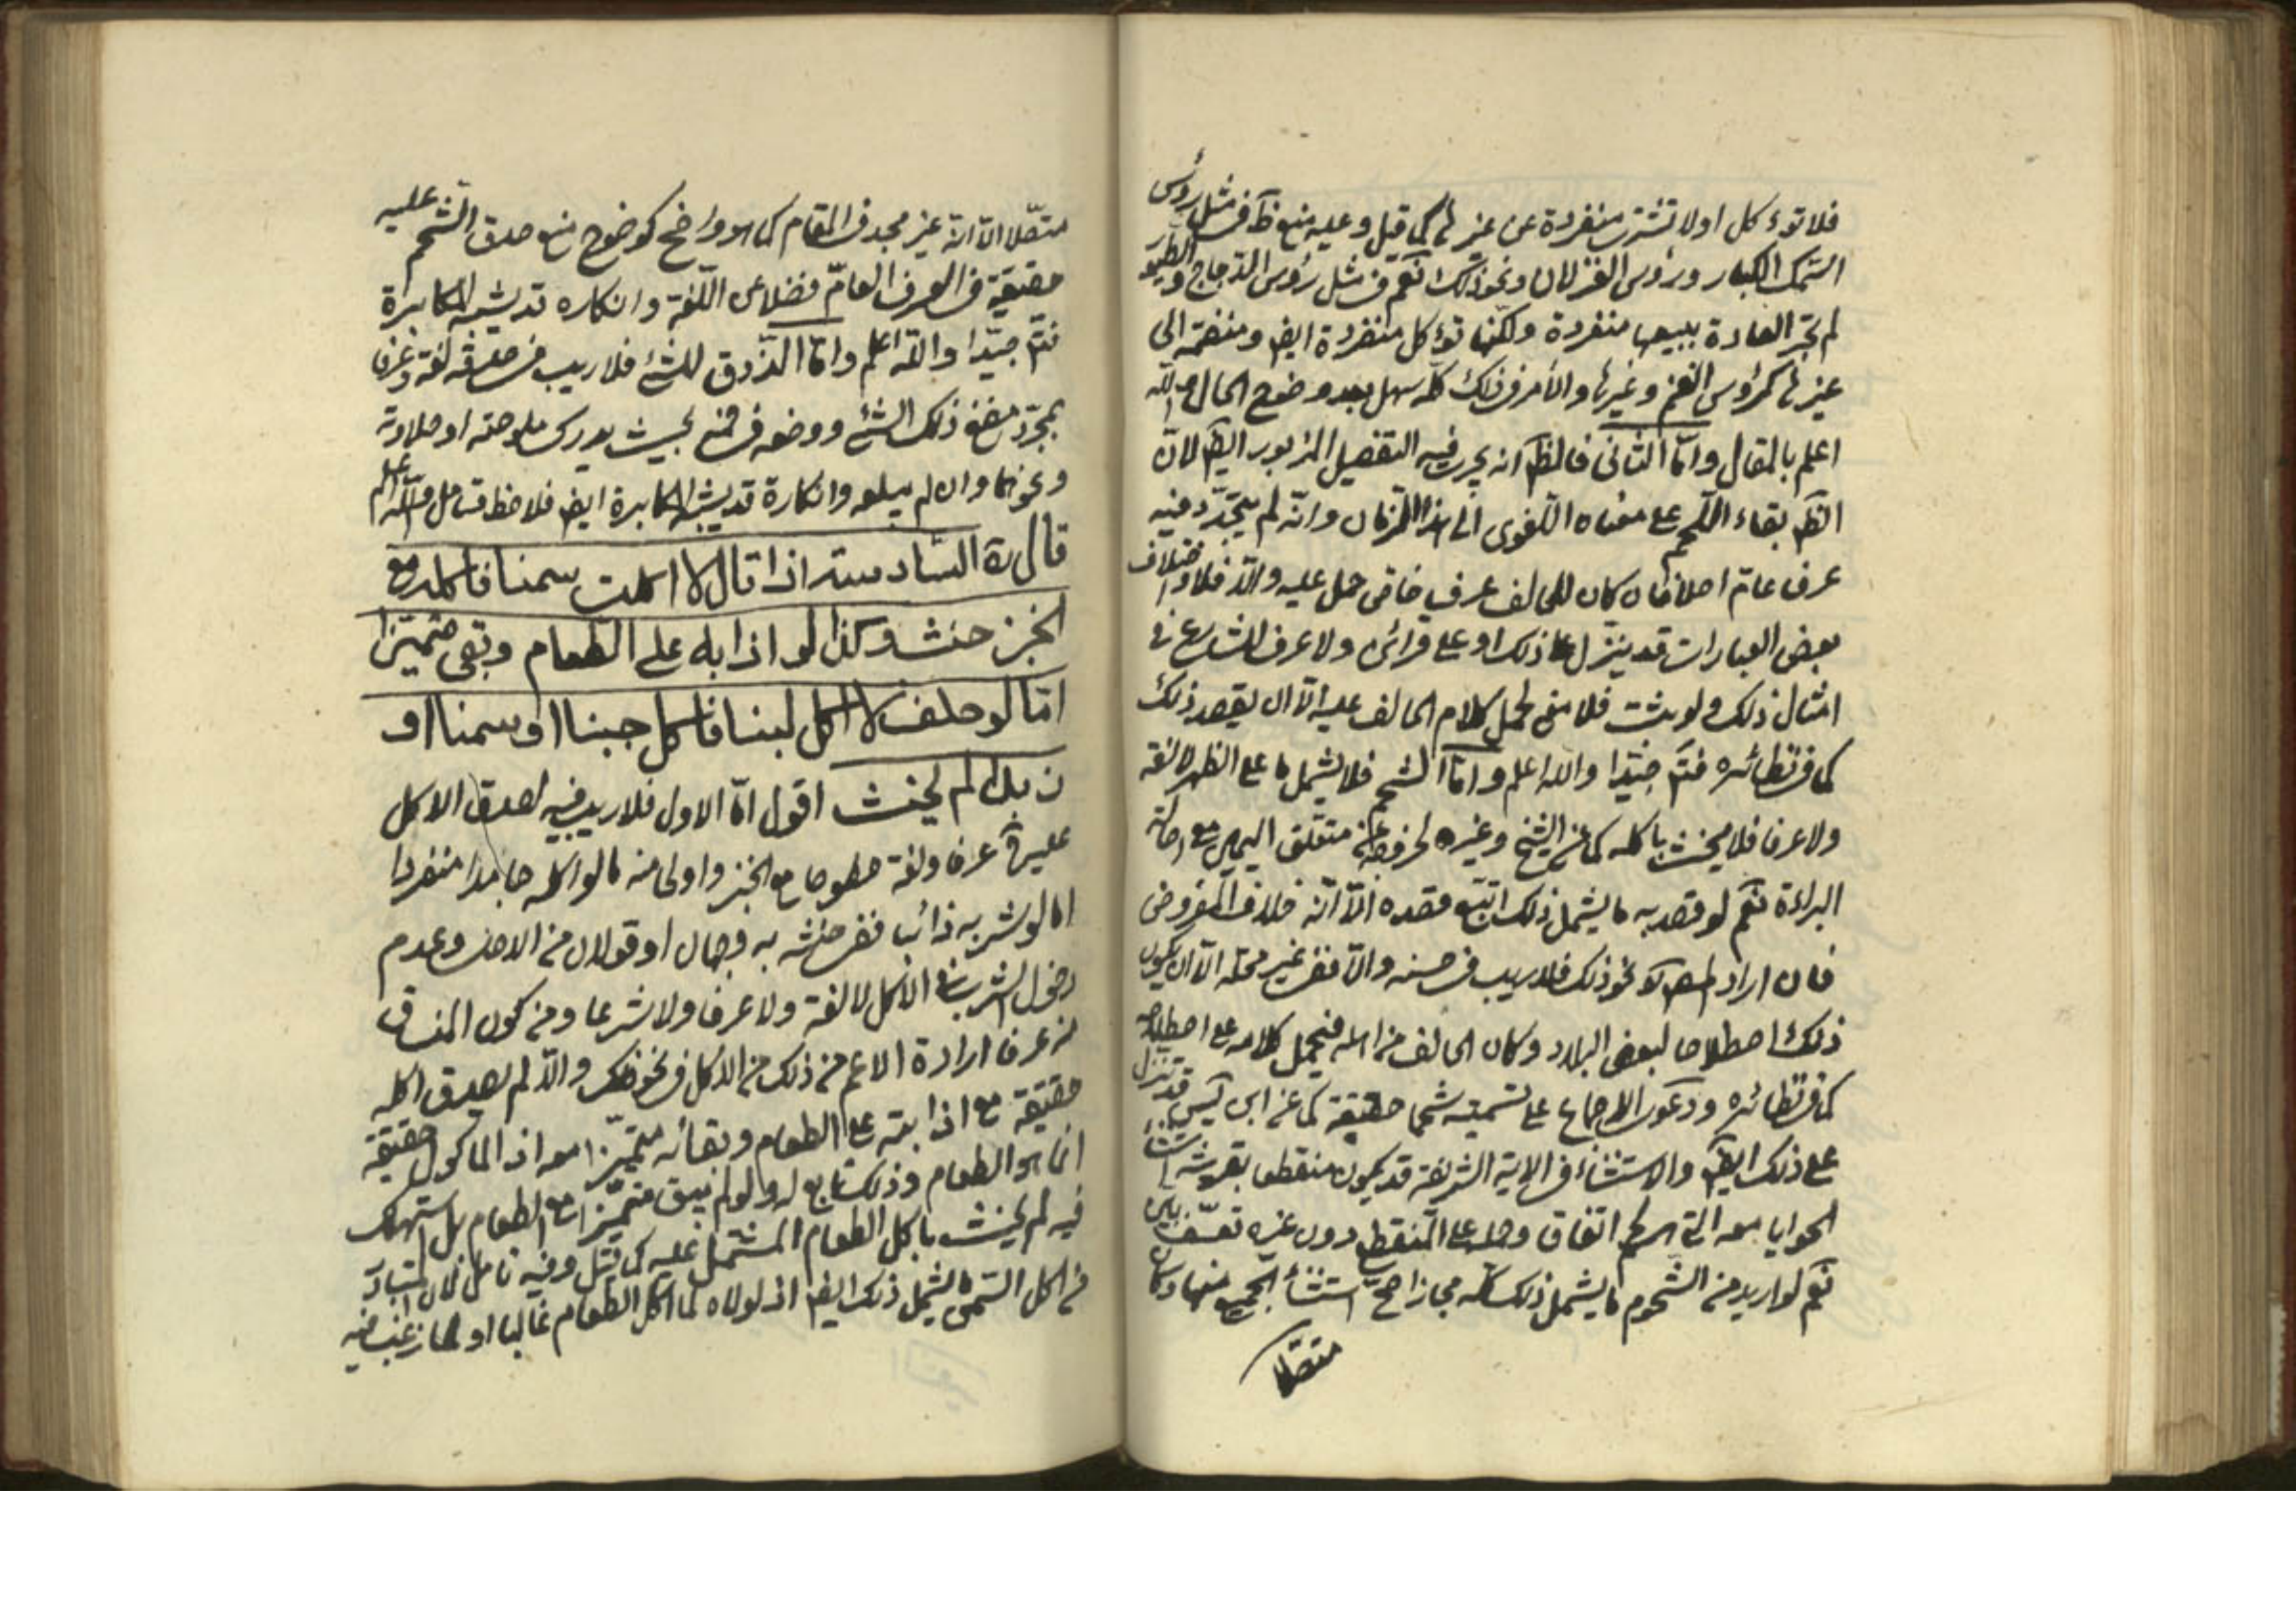 فلا تؤكل اولا تشترى منفردة عن غيرها كما قيل وعليه منع ظ في مثل رؤس
السمك الكبار ورؤس الغزلان ونحو ذلك نعم في مثل رؤس الدجاج والطيور
لم تجر العادة ببيعها منفردة ولكنها تؤكل منفردة ايض ومنضمة الى
غيرها كرؤس الغنم وغيرها والأمر في ذلك كله سهل بعد وضوح الحال والله
اعلم بالمقال وامّا الثانى فالظ انه يجرى فيه التفصيل المزبور ايض لانّ
الظ بقاء اللحم على معناه اللغوى الى هذا الزمان وانّه لم يتجدّد فيه
عرف عام اصلا فان كان للحالف عرف خاص حمل عليه والّا فلا واختلاف
بعض العبارات قد ينزل على ذلك او على قرائن ولا عرف للشارع في
امثال ذلك ولو ثبت فلا معنى لحمل كلام الحالف عليه الّا ان يقصد ذلك
كما في نظائره فتم جيّدا والله اعلم وامّا الشحم فلا يشمل ما على الظهر لا لغة
ولا عرفا فلا يحنث باكله كما عن الشيخ وغيره لخروجه عن متعلق اليمين مع اصالة
البراءة نعم لو قصد به ما يشمل ذلك اتبع قصده الّا انّه خلاف المفروض
فان اراد نحو ذلك فلا ريب في حسنه والّا ففى غير محله الّا ان يكون
ذلك اصطلاحا لبعض البلاد وكان الحالف من اهله فيحمل كلامه على اصطلاحه
كما في نظائره ودعوى الاجماع على تسميته شحما حقيقة كما عن ابن ادريس قد تنزل
على ذلك ايض والاستثناء في الاية الشريفة قد يكون منقطعا بقرينة استثناء
الحوايا معه التي لحم اتفاق وحمله على المنقطع دون غيره تعسف
نعم لو اريد من الشحوم ما يشمل ذلك كله مجازا صح استثناء الجميع منها وكان
متصلا
متصّلا الّا انّه غير مجد في المقام كما هو واضح كوضوح منع صدق الشحم عليه
حقيقة في العرف العامّ فضلا عن اللّغة وانكاره قد يشبه المكابرة
فتم جيّدا والله اعلم وامّا الذّوق للشئ فلا ريب في صدقه لغة وعرفا
بمجرّد مضغ ذلك الشئ ووضعه في فمه بحيث يدرك ملوحته او حلاوته
ونحوهما وان لم يبلعه وانكاره قد يشبه المكابرة ايض فلاحظ وتامل والله اعلم
قال ره السّادسة اذا قال لا اكلت سمنا فاكله مع
الخبز حنث وكذا لو اذابه على الطعام وبقى متميّزا
امّا لو حلف لا اكل لبنا فاكل جبنا او سمنا او
زبدا لم يحنث اقول امّا الاول فلا ريب فيه لصدق الاكل
عليه عرفا ولغة مطبوخا مع الخبز واولى منه ما لو اكله جامدا منفردا
امّا لو شربه ذائبا ففى حنثه به وجهان او قولان من الاصل وعدم
دخول الشرب في الاكل لا لغة ولا عرفا ولا شرعا ومن كون المنساق
منه عرفا ارادة الاعم من ذلك من الاكل في نحو ذلك والّا لم يصدق اكله
حقيقة مع اذابته على الطعام وبقائه متميّزا معه اذ الماكول حقيقة
انما هو الطعام وذلك تابع له ولو لم يبق متميّزا مع الطعام بل استهلك
فيه لم يحنث باكل الطعام المشتمل عليه كما قيل وفيه تامل لان المتبادر
من اكل السّمن ما يشمل ذلك ايض اذ لولاه لما اكل الطعام غالبا او لما رغب فيه